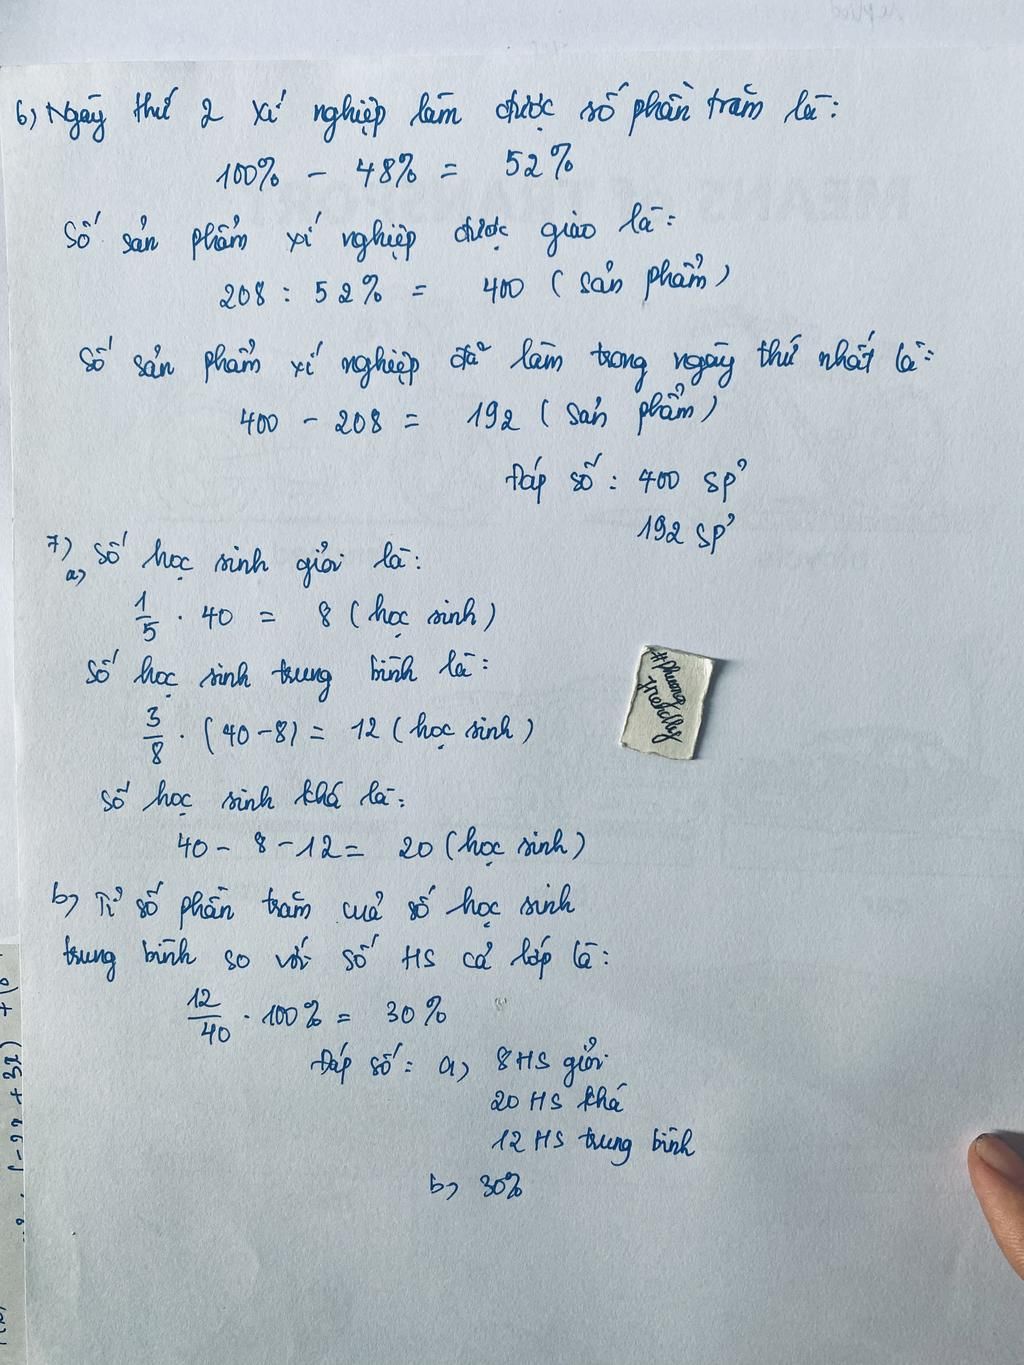 6) Ngày thứ 2 xí nghiệp làm được số phần trăm là:
100% - 48% = 52%
Số sản phẩm xí nghiệp được giao là:
208 : 52% = 400 (sản phẩm)
Số sản phẩm xí nghiệp đã làm trong ngày thứ nhất là:
400 - 208 = 192 (sản phẩm)
Đáp số: 400 sp'
192 sp'
7)
a) Số học sinh giỏi là:
1/5 . 40 = 8 (học sinh)
Số học sinh trung bình là:
3/8 . (40-8) = 12 (học sinh)
Số học sinh khá là:
40 - 8 - 12 = 20 (học sinh)
b) Tỉ số phần trăm của số học sinh
trung bình so với số HS cả lớp là:
12/40 . 100% = 30%
Đáp số: a) 8 HS giỏi
20 HS khá
12 HS trung bình
b) 30%
#phuong